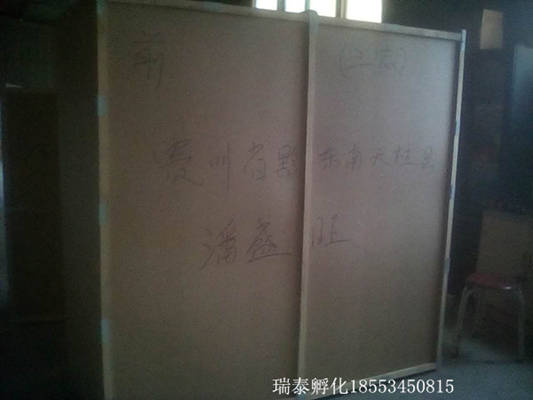 前
贵州省黔东南天柱县
潘盛旺
瑞泰孵化18553450815